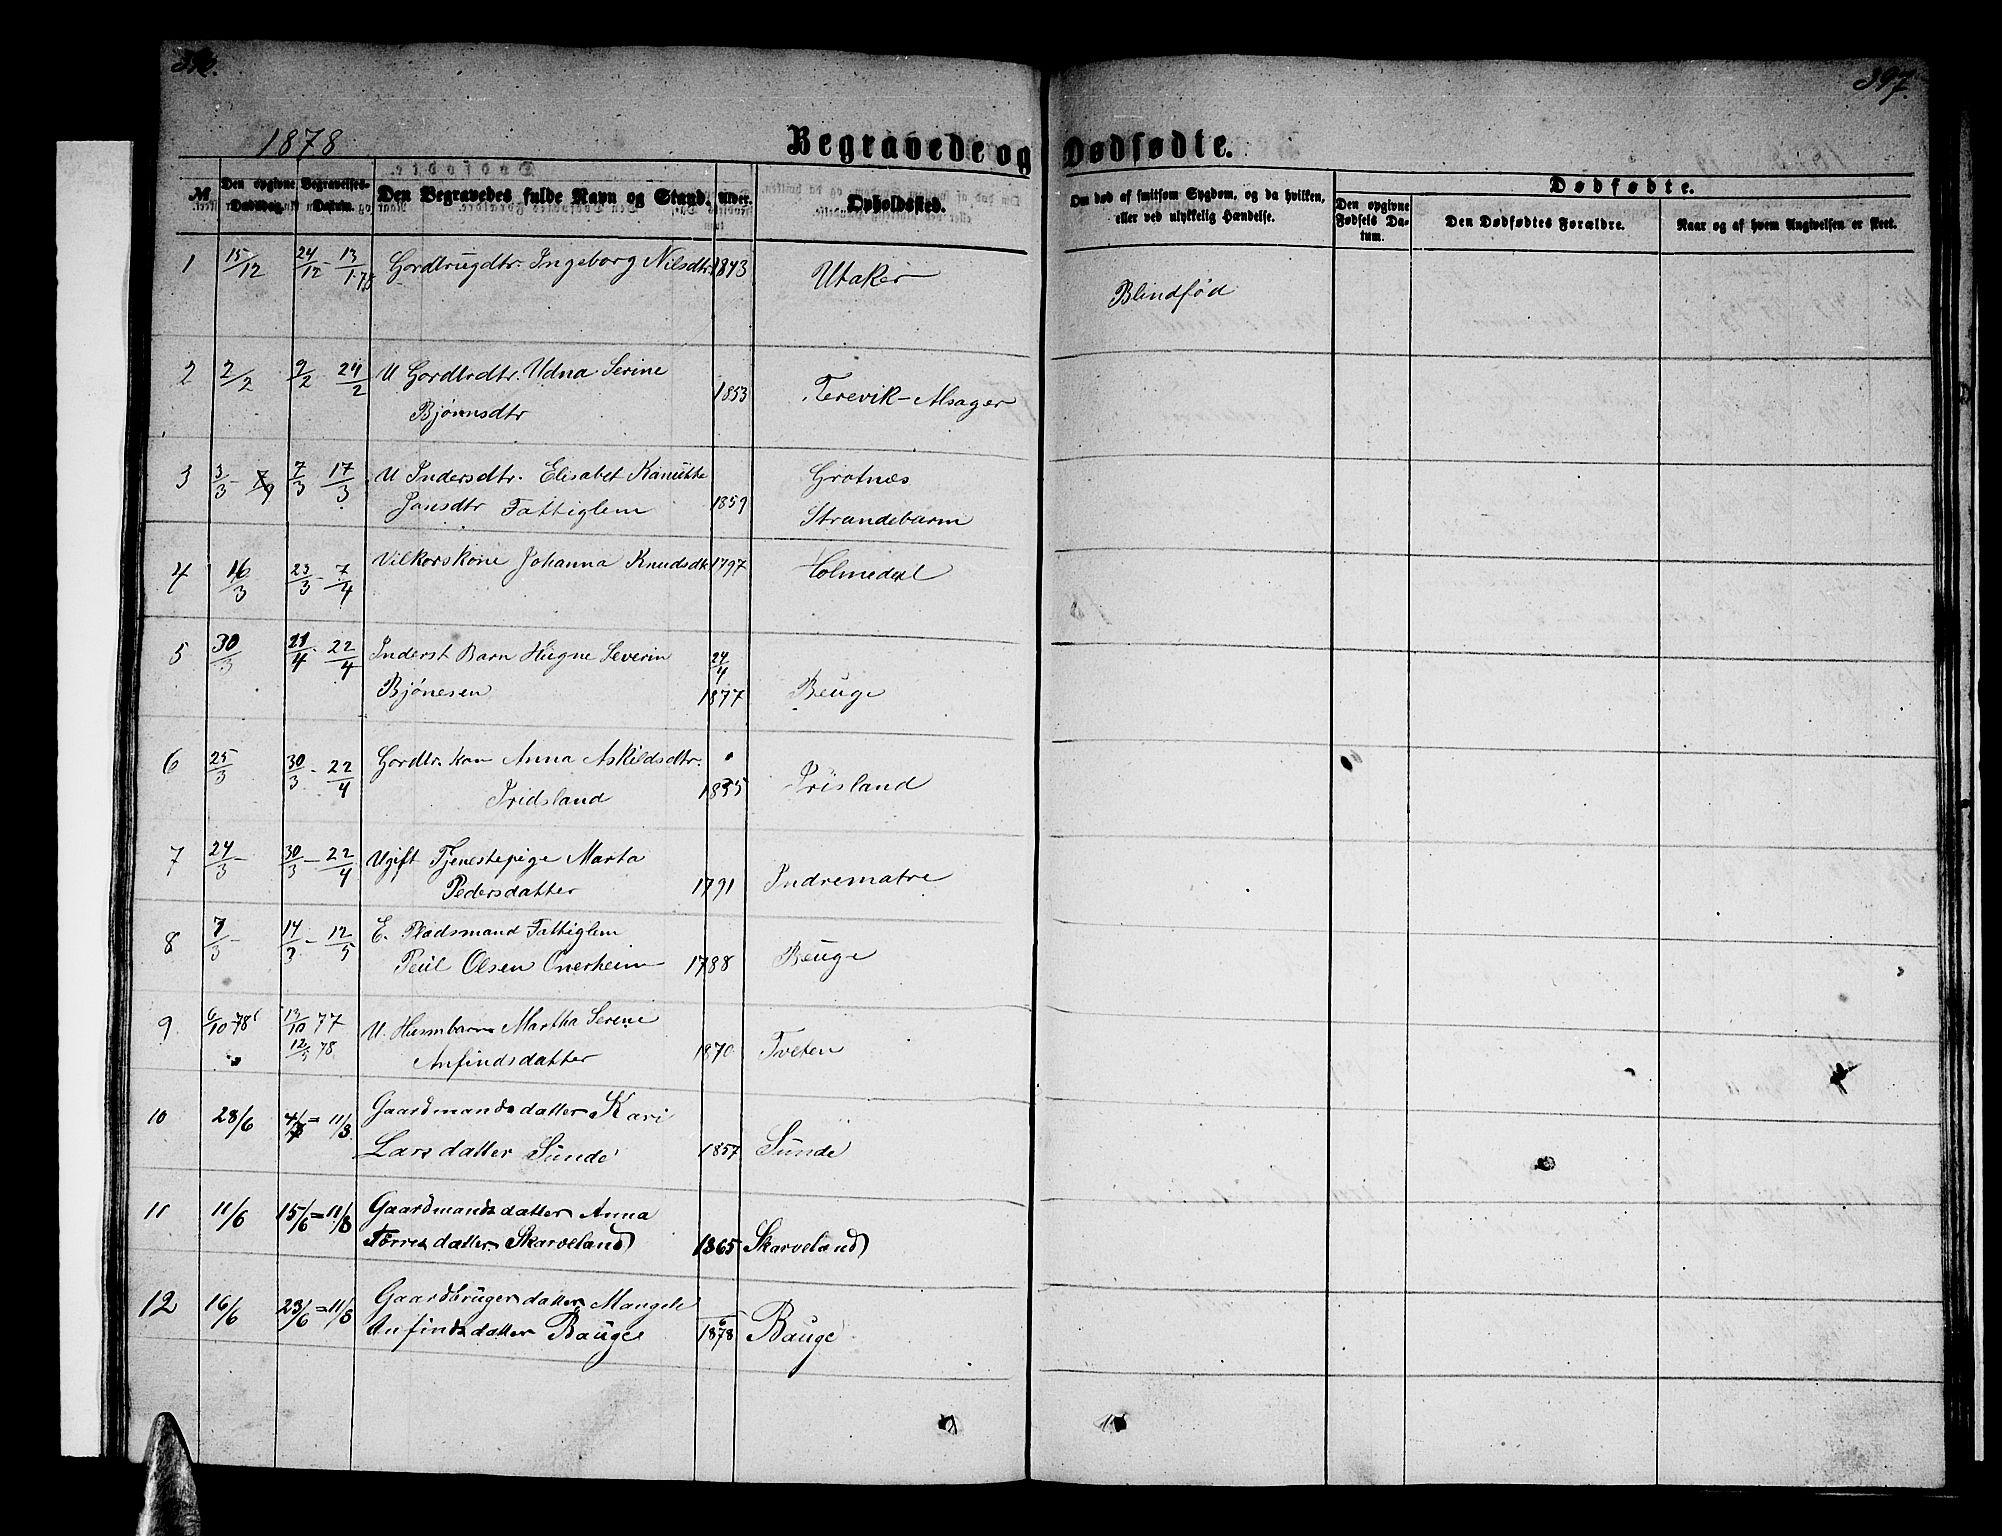 397.
1878
Begravede og Dødfødte.
№ Den opgivne Dødsdag. Begravelses-Datum. Den Begravedes fulde Navn og Stand. Alder. Opholdssted. Om død af smitsom Sygdom, og da hvilken, eller ved ulykkelig Hændelse.
Dødfødte.
Den opgivne Fødsels Datum. Den Dødfødtes Forældre. Naar og af hvem Angivelsen er skeet.
1 15/12 24/12 - 13/1.78 Gordbrugdtr. Ingeborg Nilsdtr. 1843 Utaker Blindfød
2 2/2 9/2 24/2 U Gordbrdtr. Udna Serine
Bjørnsdtr 1853 Terevik-Alsager
3 3/3 - 7/3 17/3 U Indersdtr. Elisabet Kanutte Grotnæs
Jonsdtr Fattiglem 1859 Strandebarm
4 16/3 23/3 - 7/4 Vilkorskone Johanna Knudsdtr 1797 Holmedal
5 30/3 21/4 - 22/4 Inderst Barn Hugne Severin 24/4
Bjønesen 1877 Beuge
6 25/3 30/3 - 22/4 Gordbr. kon Anna Askildsdtr.
Fridsland 1835 Frisland
7 24/3 - 30/3 - 22/4 Ugift Tjenestepige Marta
Pedersdatter 1791 Indrematre
8 7/3 - 14/3 - 12/5 E. Pladsmand Fattiglem
Poul Olsen Onerheim 1788 Beuge
9 6/10 78 13/10 77 U. Husmbarn Martha Serine
12/5 78 Anfindsdatter 1870 Tveten
10 28/6 = 11/8 Gaardmandsdatter Kari
Larsdatter Sunde 1857 Sunde
11 11/6 15/6 = 11/8 Gaardmandsdatter Anna
Torresdatter Skarveland 1865 Skarveland
12 16/6 23/6 = 11/8 Gaardbrugersdatter Mangele
Anfindsdatter Bauge 1878 Bauge